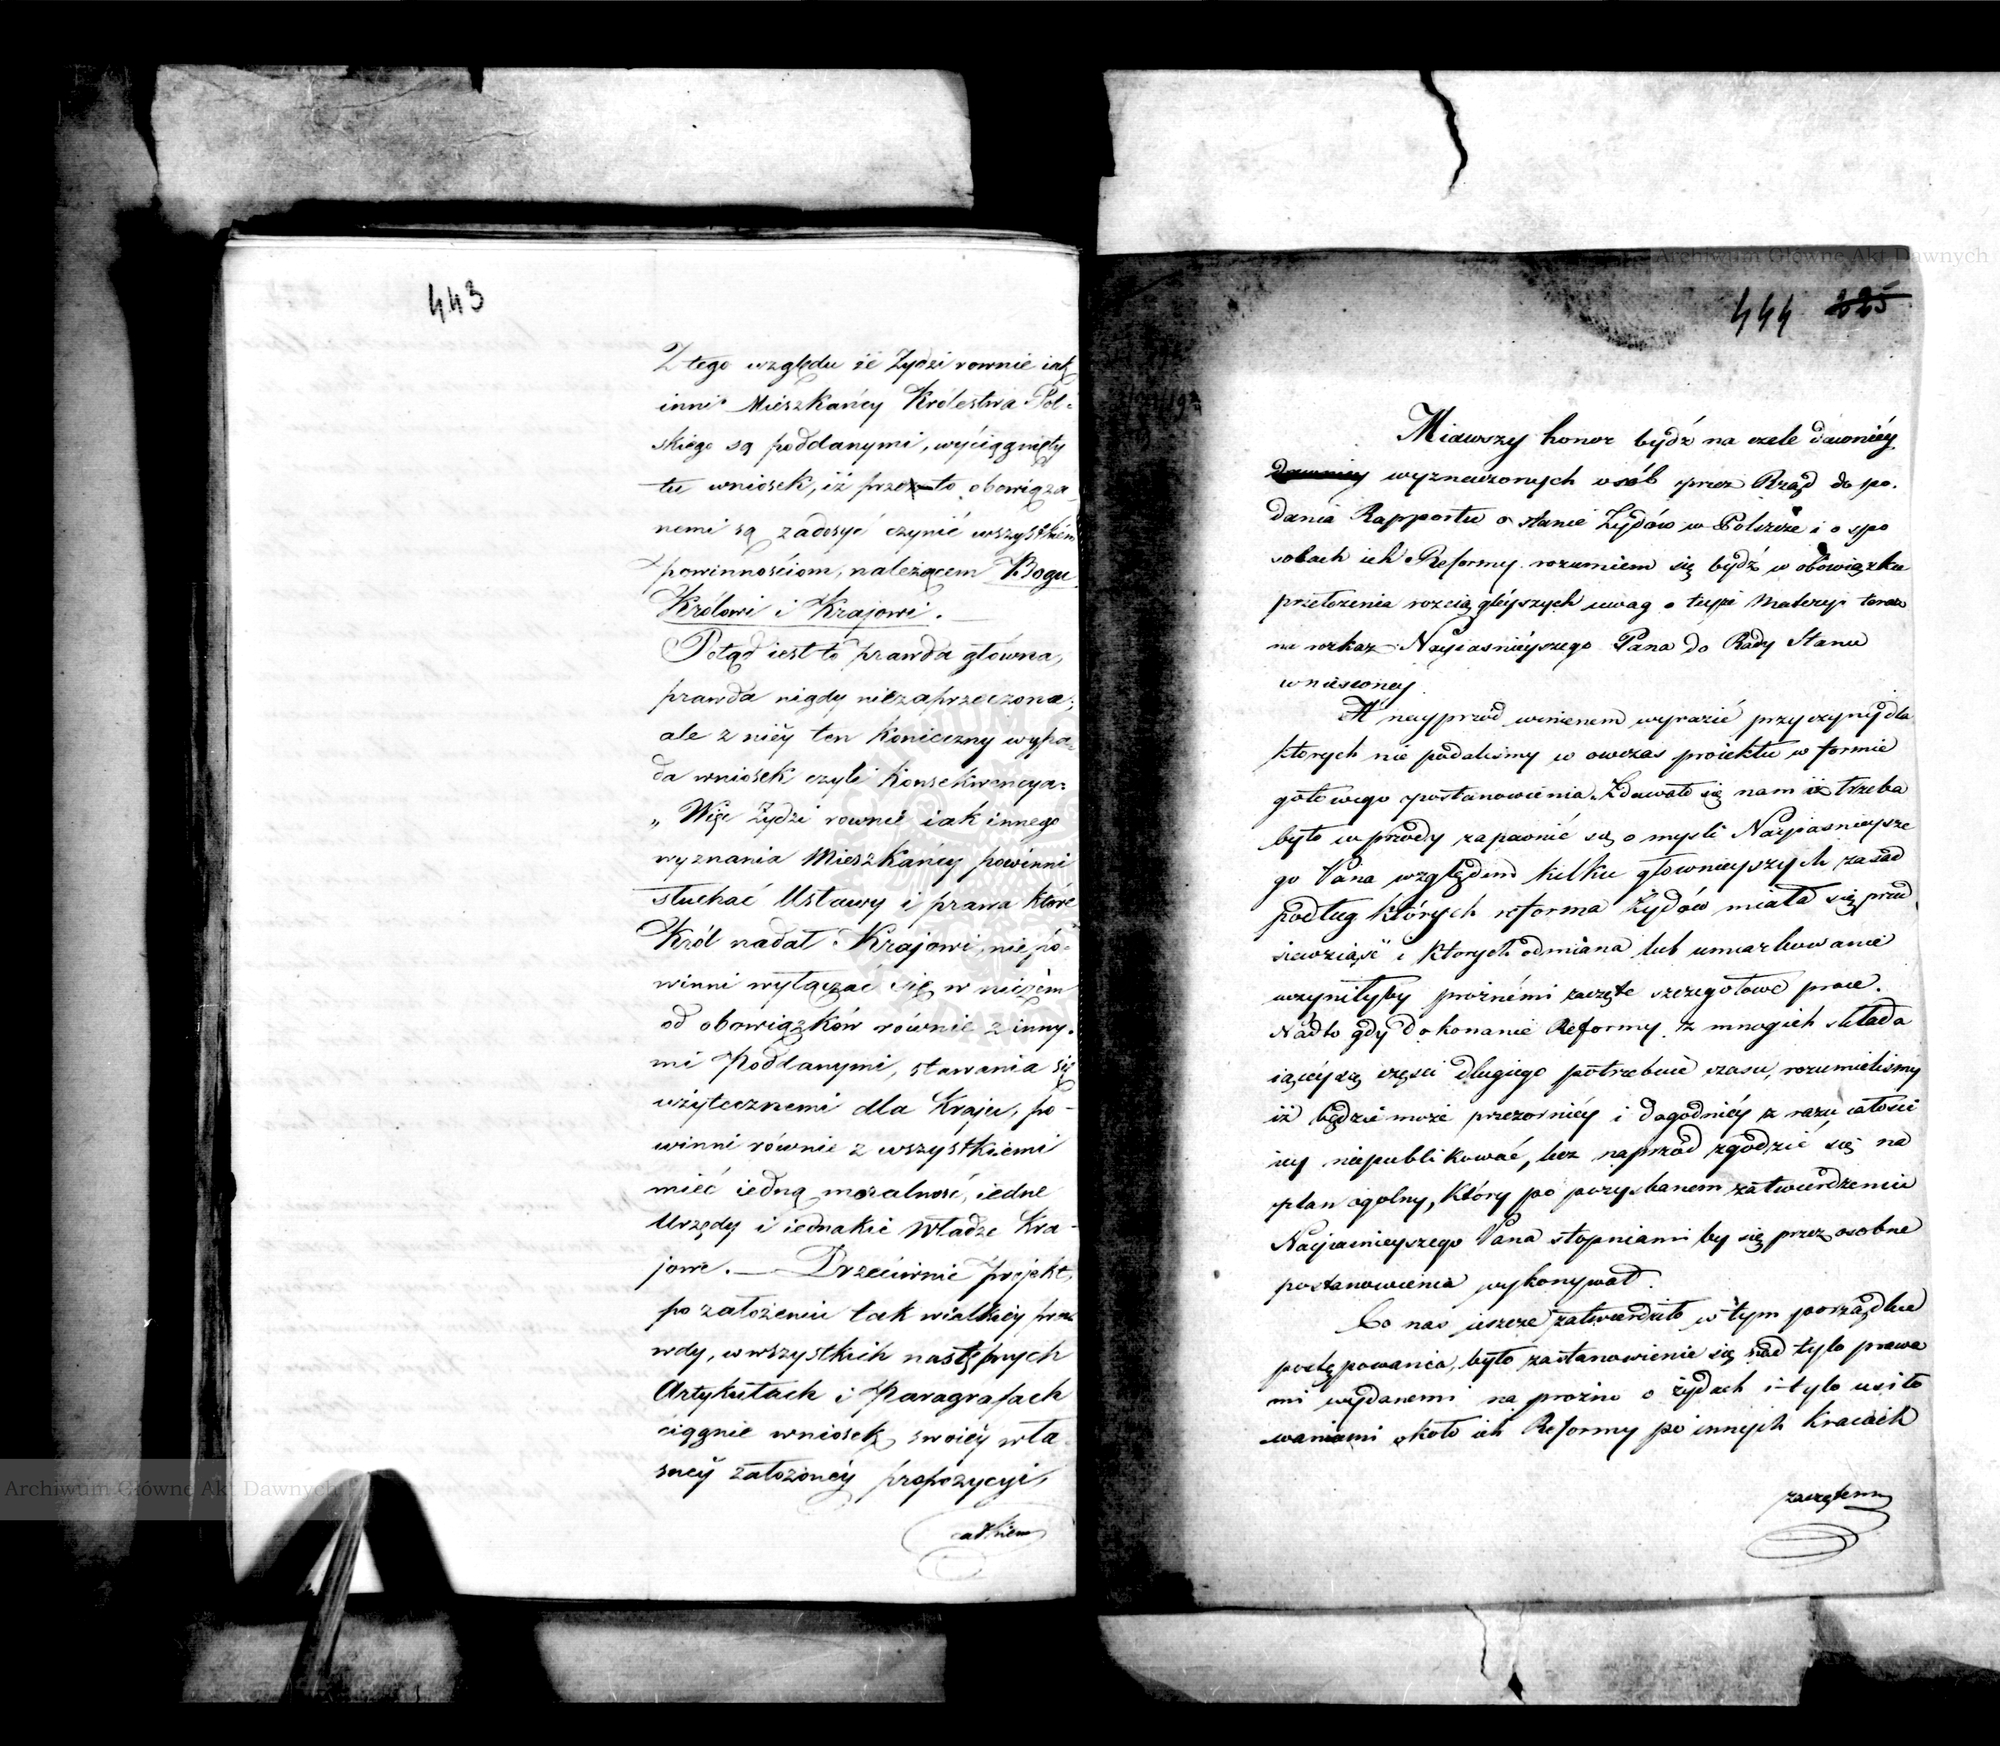 443
Z tego względu że Żydzi rownie iak
inni Mieszkańcy Królestwa Pol-
skiego są poddanymi, wyciągnięty
tu wniosek, iż przez to obowiąza-
nemi są zadosyć czynić wszystkiém
powinnościom, należącem Bogu
Królowi i Krajowi.
Potąd iest to prawda główna,
prawda nigdy niezaprzeczona;
ale z niéy ten konieczny wypa-
da wniosek czyli konsekwencya:
„Więc Żydzi rownie iak innego
wyznania Mieszkańcy powinni
słuchać Ustawy i prawa które
Król nadał Krajowi, nie po-
winni wyłączać się w niczém
od obowiązków równie z inny-
mi Poddanymi, stawania się
użytecznemi dla Kraju, po-
winni równie z wszystkiemi
mieć iedną moralność, iedne
Urzędy i iednakie Władze Kra-
jowe. — Przeciwnie projekt,
po założeniu tak wielkiéy pra-
wdy, w wszystkich następnych
Artykułach i Paragrafach
ciągnie wniosek swoiéy wła-
snéy założonéy propozycyi,
444 225
Miawszy honor bydź na czele dawniéy
dawniey wyznaczonych osób przez Rząd do po-
dania Rapportu o stanie Żydów w Polszcze i o spo
sobach ich Reformy rozumiem się bydź w obowiązku
przełożenia rozciągléyszych uwag o teyże Materyi teraz
na rozkaz Nayiaśnieyszego Pana do Rady Stanu
wniesioney.
A nayprzód winienem wyrazić przyczyny dla
których nie podaliśmy w owczas proiektu w formie
gotowego postanowienia. Zdawało się nam iż trzeba
było wprzódy zapewnić się o myśli Nayiasnieysze
go Pana względem kilku głownieyszych zasad
podług których reforma Żydów miała się przed
siewziąść i których odmiana lub umiarkowanie
uczyniłyby proźnémi zaczęte szczegołowe prace.
Nadto gdy dokonanie Reformy z mnogich składa
iącéy się części długiego potrzebuie czasu, rozumieliśmy
iż będzie może przezorniéy i dogodniéy z razu całości
iey niepublikować, lecz naprzód zgodzić się na
plan ogolny, który po pozyskanem zatwierdzeniu
Nayiasnieyszego Pana stopniami by się przez osobne
postanowienia wykonywał.
Co nas ieszcze zatwierdziło w tym porządku
postępowania, było zastanowienie się nad tylo prawa
mi wydanemi na prożno o żydach i tylo usiło
waniami około ich Reformy po innych kraiach
zaczętemi
Archiwum Główne Akt Dawnych
Archiwum Główne Akt Dawnych